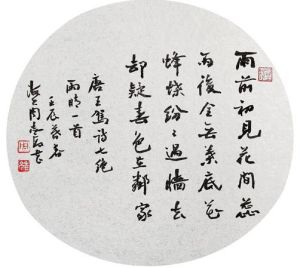 雨前初見花間蕊
雨後全無葉底花
蜂蝶紛〻過墻去
却疑春色在鄰家
唐王駕詩七绝
雨晴一首
壬辰暮春